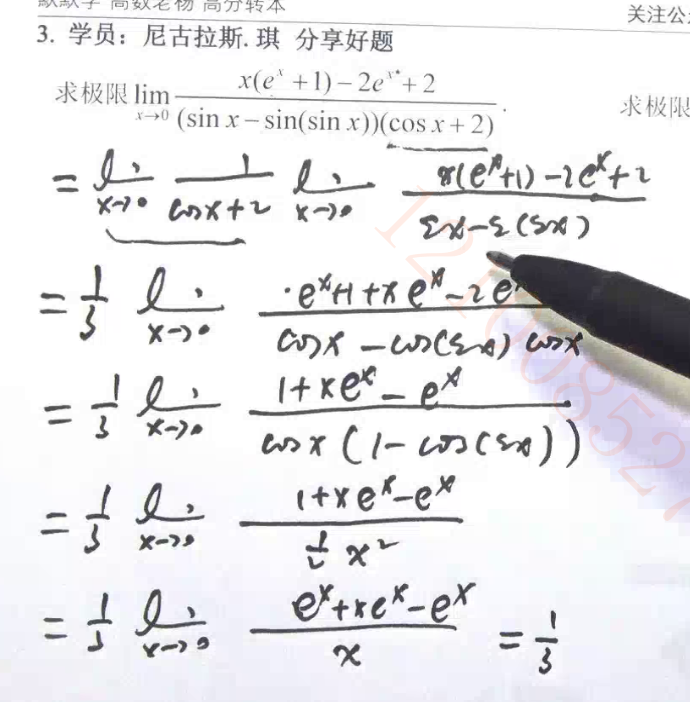 默默学 高数老杨 高分转本
关注公
3. 学员：尼古拉斯.琪 分享好题
求极限 lim x→0 x(e^x + 1) − 2e^x + 2 / (sin x − sin(sin x))(cos x + 2) .
求极限
= lim x→0 1 / cosx+2 lim x→0 x(e^x+1) −2e^x+2 / sx−s(sx)
= 1/3 lim x→0 e^x+1+xe^x−2e / cosx −cos(sx) cosx
= 1/3 lim x→0 1+xe^x − e^x / cosx (1− cos(sx))
= 1/3 lim x→0 1+xe^x−e^x / 1/2 x^2
= 1/3 lim x→0 e^x+xe^x−e^x / x = 1/3